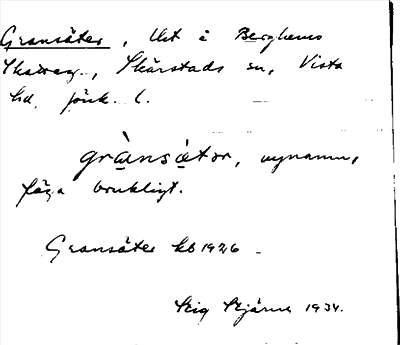 Gransäter, Uet å Berghems
Skatteg., Skärstads sn, Vista
hd, Jönk. l.
grànsä̀tər, nynamn,
föga brukligt.
Gransäter kb 1926
Stig Stjärne 1934.